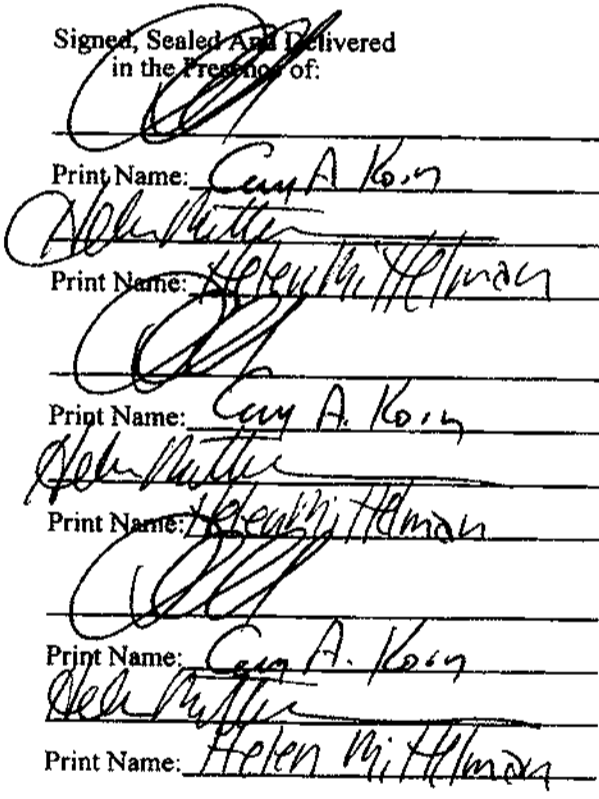 Signed, Sealed And Delivered
in the Presence of:
Print Name: Cary A Korn
Helen Mittelman
Print Name: Helen Mittelman
Print Name: Cary A. Korn
Helen Mittelman
Print Name: Helen Mittelman
Print Name: Cary A. Korn
Helen Mittelman
Print Name: Helen Mittelman